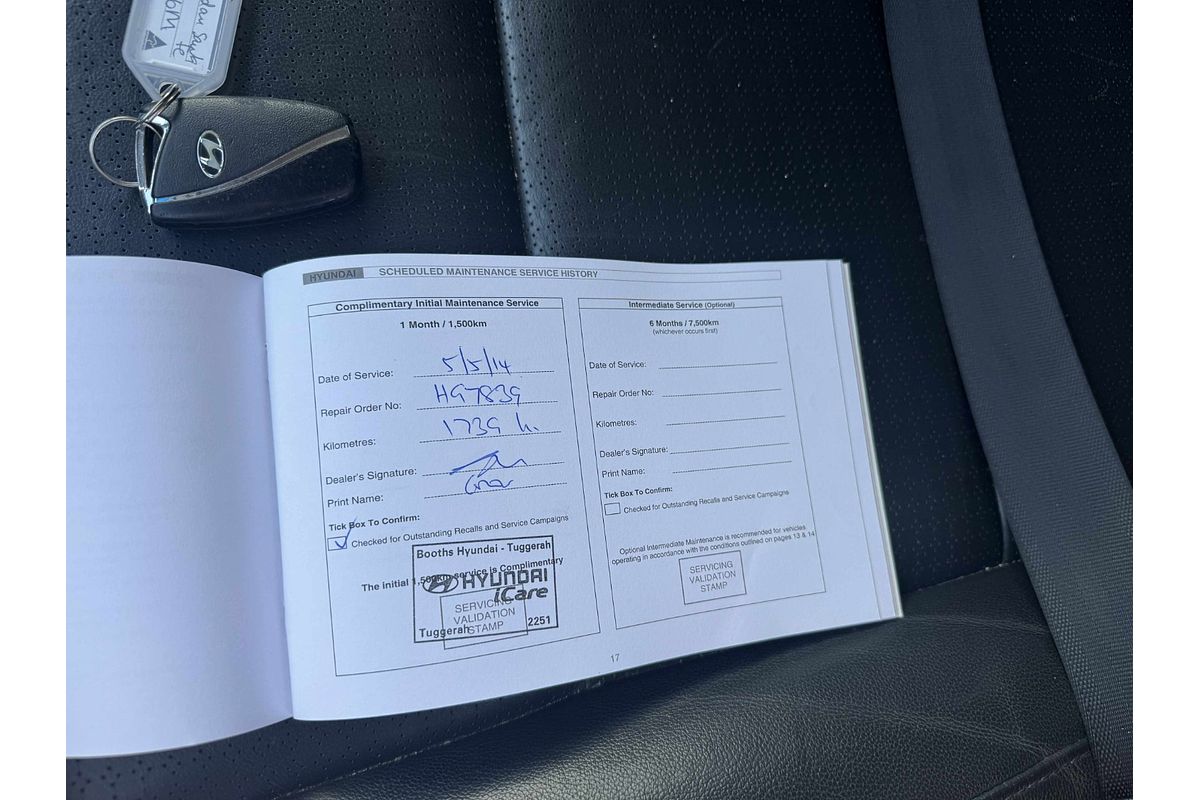 HYUNDAI SCHEDULED MAINTENANCE SERVICE HISTORY
Complimentary Initial Maintenance Service
1 Month / 1,500km
Date of Service: 5/5/14
Repair Order No: H97839
Kilometres: 1739
Dealer's Signature:
Print Name:
Tick Box To Confirm:
Checked for Outstanding Recalls and Service Campaigns
The initial 1,500km service is Complimentary
Booths Hyundai - Tuggerah
HYUNDAI
iCare
Tuggerah 2251
SERVICING
VALIDATION
STAMP
Intermediate Service (Optional)
6 Months / 7,500km
(whichever occurs first)
Date of Service:
Repair Order No:
Kilometres:
Dealer's Signature:
Print Name:
Tick Box To Confirm:
Checked for Outstanding Recalls and Service Campaigns
Optional Intermediate Maintenance is recommended for vehicles
operating in accordance with the conditions outlined on pages 13 & 14
SERVICING
VALIDATION
STAMP
17